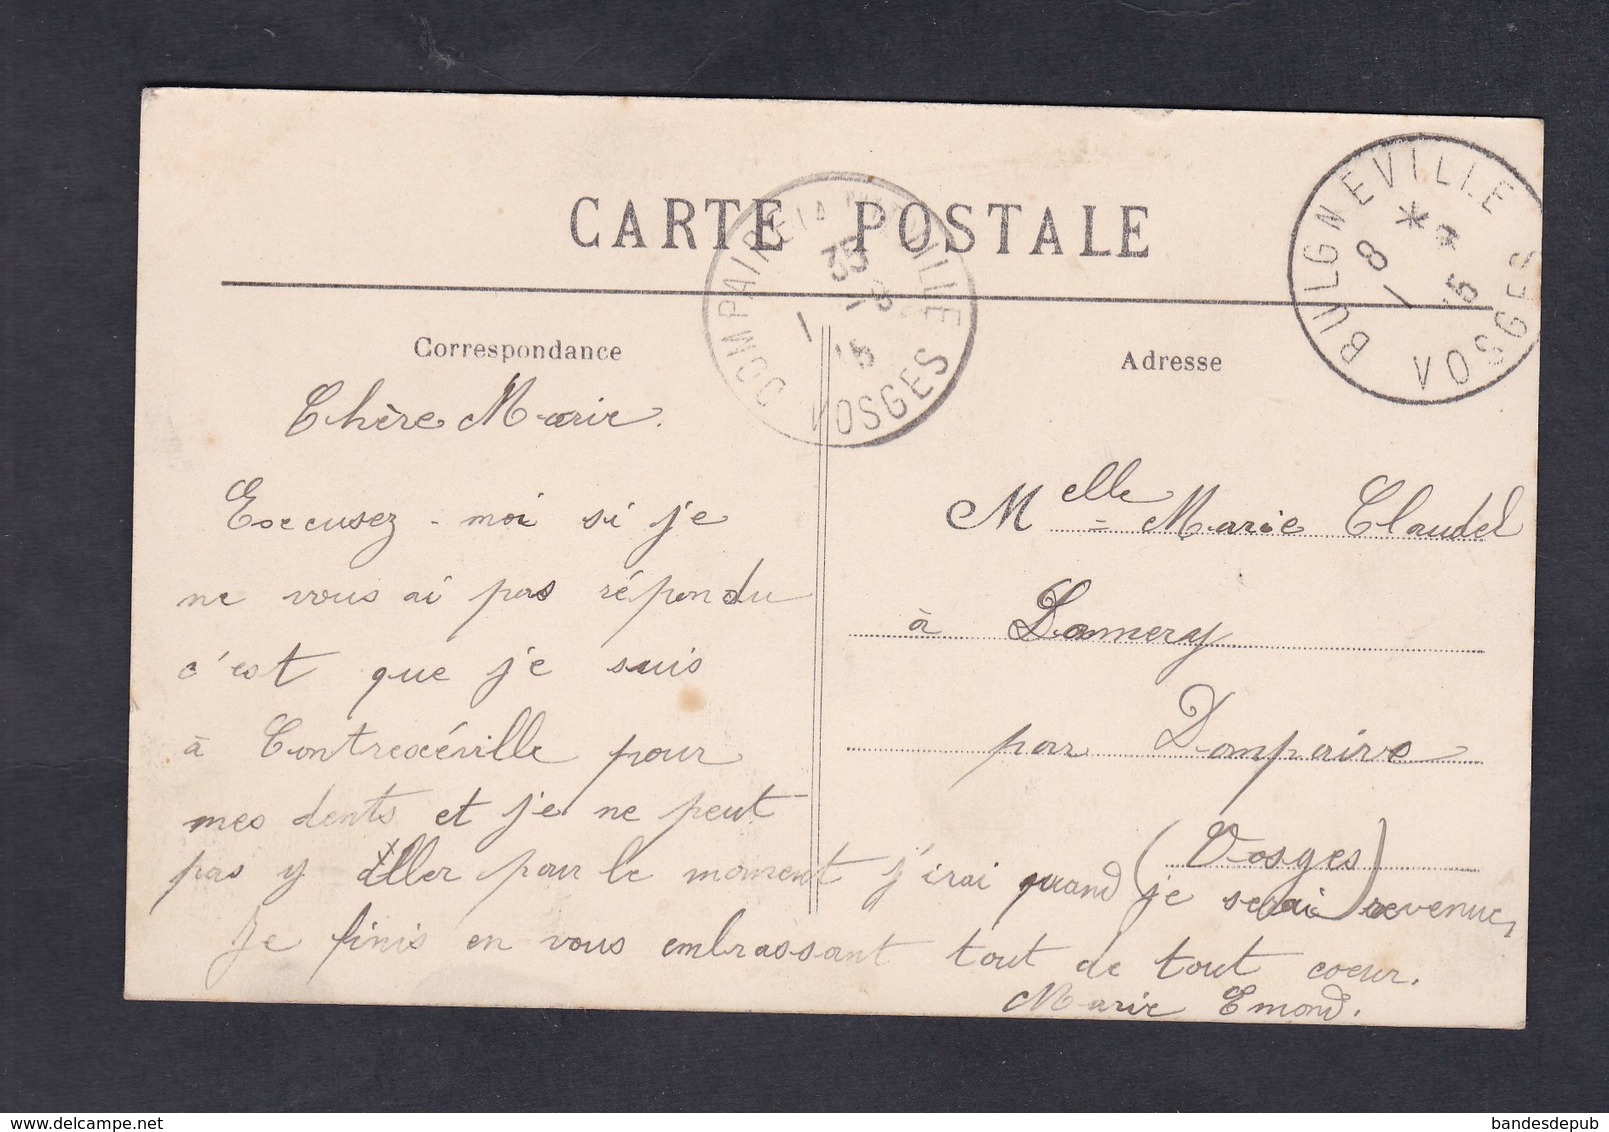 CARTE POSTALE
BULGNEVILLE
* 8
8 - 1 15
VOSGES
DOMPAIRE
35
8 - 1 15
VOSGES
Correspondance
Adresse
Chère Marie.
Excusez-moi si je
ne vous ai pas répondu
c'est que je suis
à Contrexéville pour
mes dents et je ne peut
pas y aller pour le moment j'irai quand je serai revenue,
Je finis en vous embrassant tout de tout coeur.
Marie Emond.
Melle Marie Claudel
à
par Dompaire
(Vosges)
bandesdepub